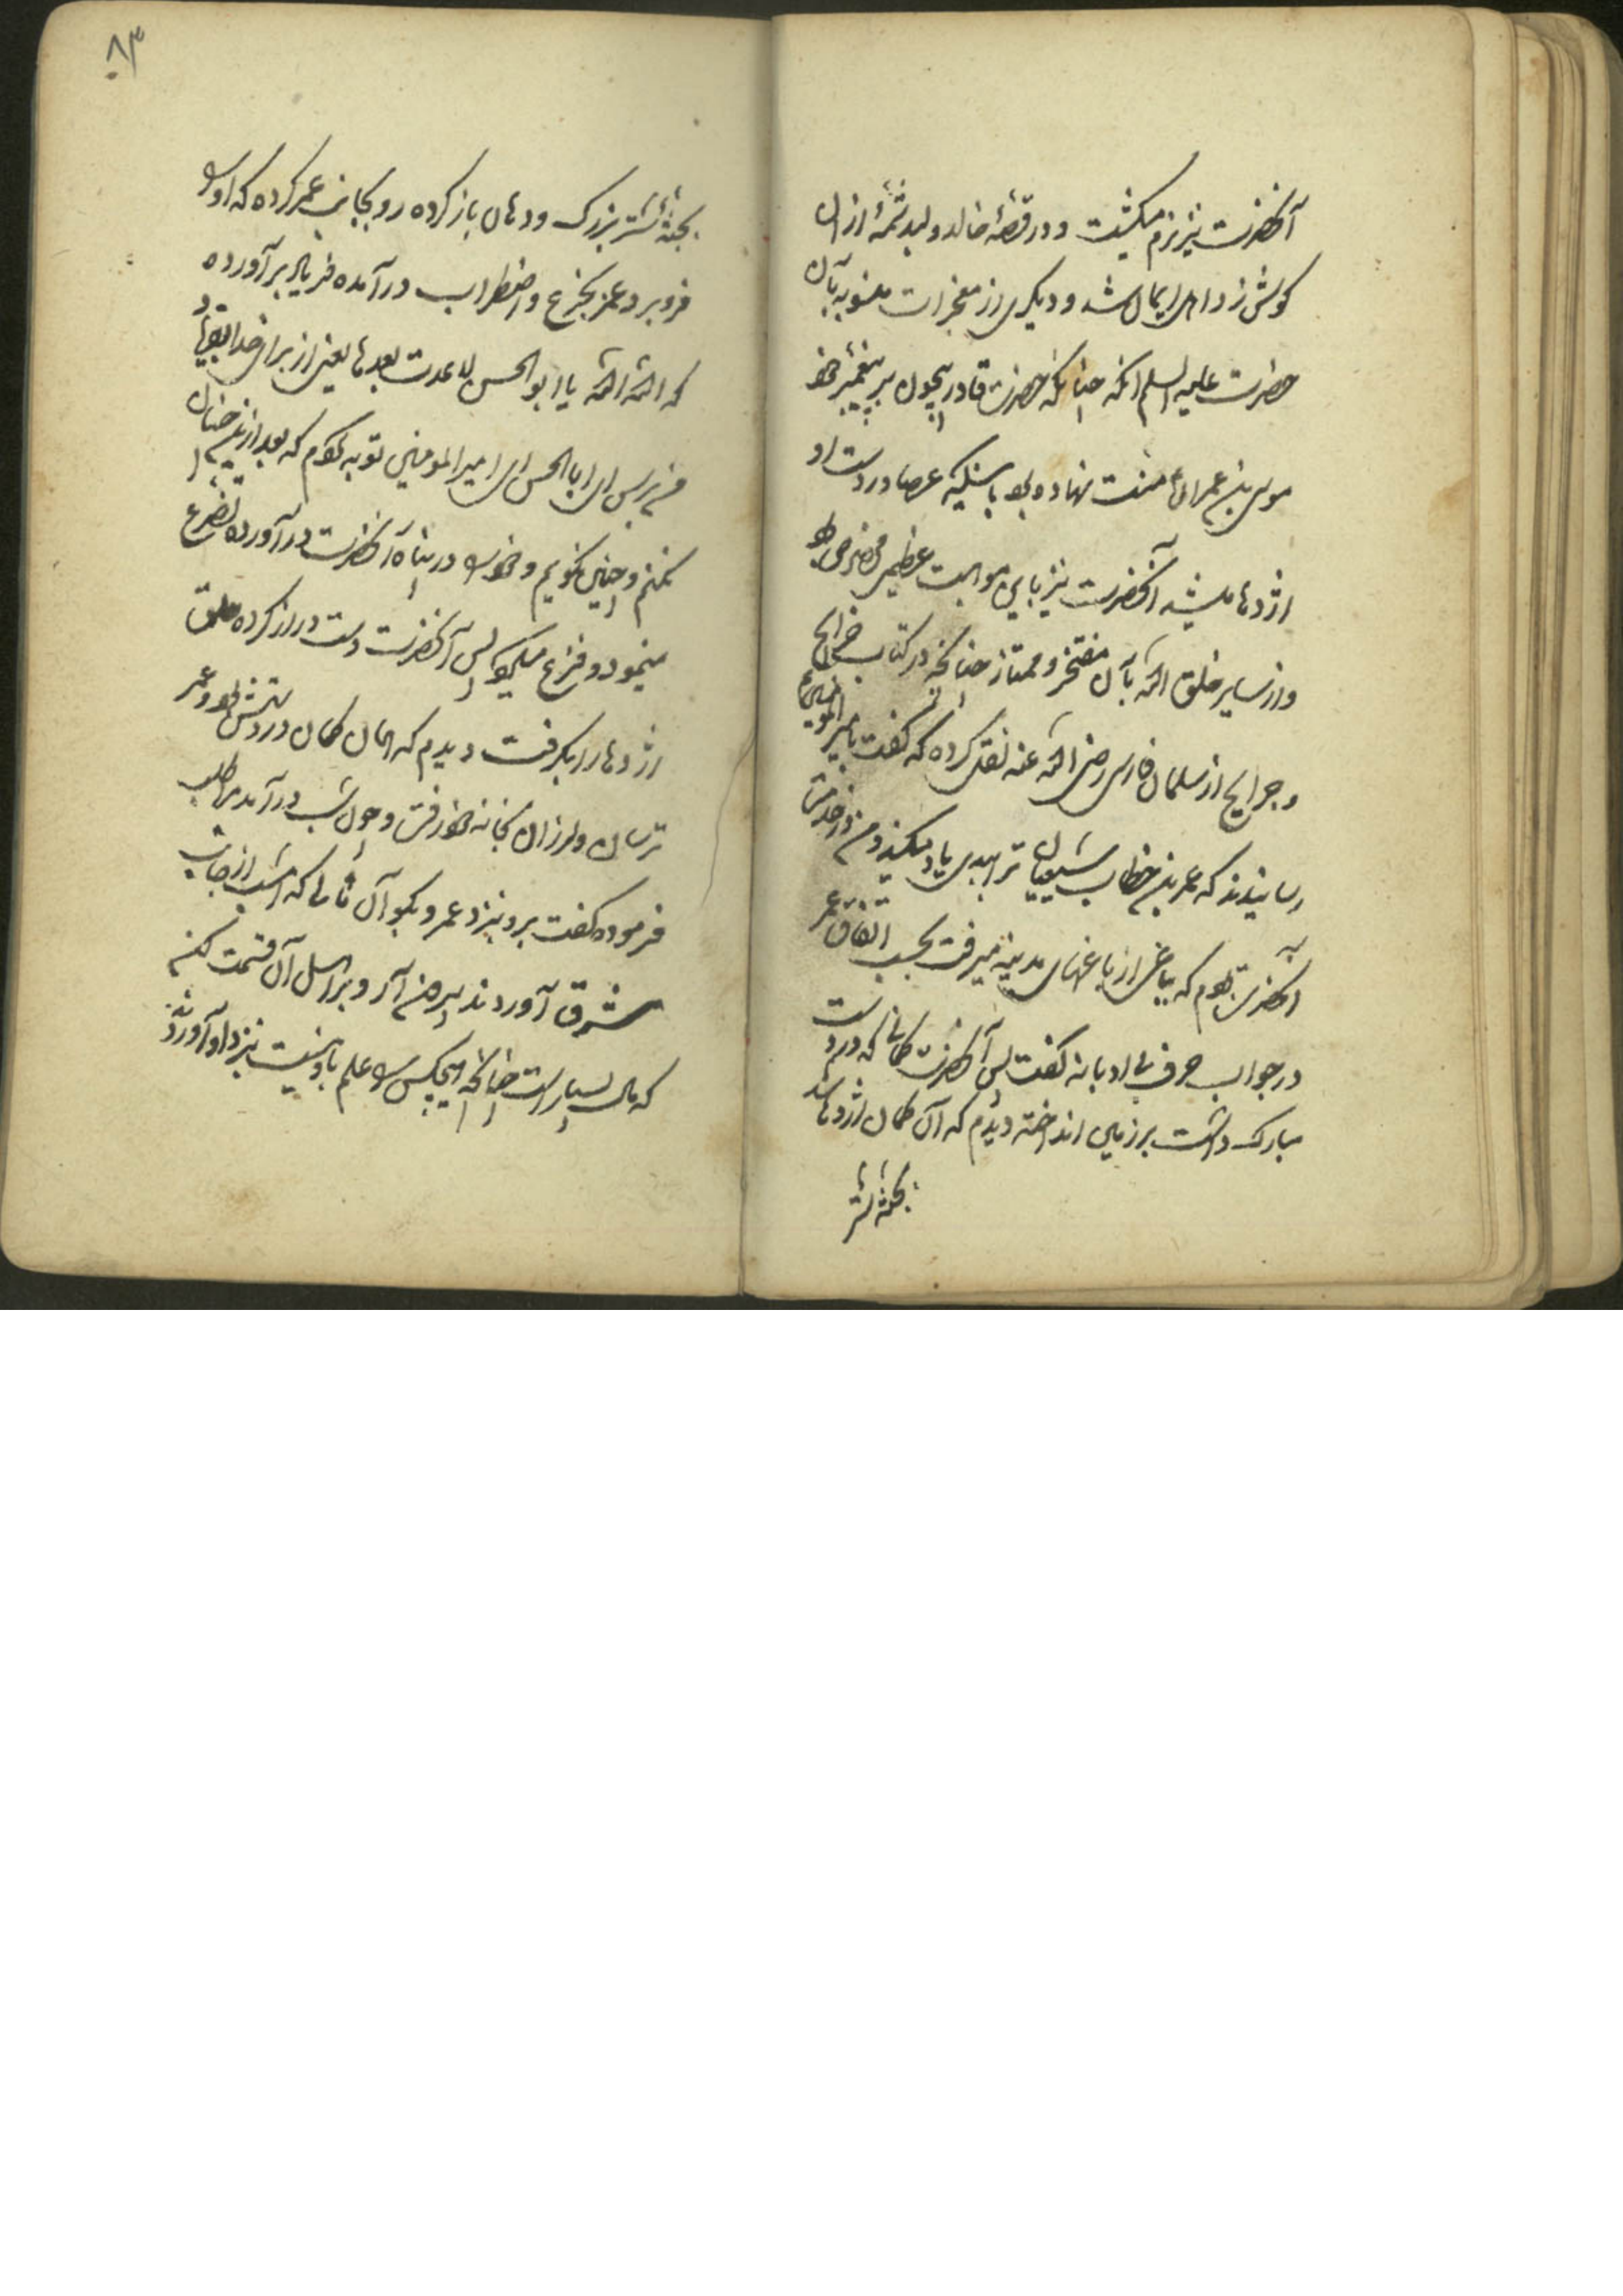 آنحضرت نیز نرم میکشت و در قصهٔ خالد ولید شمهٔ از ان
کوش زد اهل ایمان شد و دیکری از معجزات منسوبه بآن
حضرت علیه السلم آنکه چنانکه حضرت قادر بیچون بر پیغمبر خود
موسی بن عمران منت نهاده بود باینکه عصا در دست او
اژدها میشد آنحضرت نیز باین موهبت عظمی مخصوص بود
و از سایر خلق الله بآن مفتخر و ممتاز چنانکه در کتاب خرایج
و جرایح از سلمان فارسی رضی الله عنه نقل کرده که گفت بامیر المومنین
رسانیدند که عمر بن خطاب شیعیان ترا ببدی یاد میکند و من در خدمت
آنحضرت بودم که بباغی از باغهای مدینه میرفت بحسب اتفاق عمر
در جواب حرف بی ادبانه گفت پس آنحضرت کمانی که در دست
مبارک داشت بر زمین انداخته دیدم که آن کمان اژدها شد
بجثه شتر
۸۳
بجثهٔ شتر بزرک و دهان باز کرده رو بجانب عمر کرده که او را
فرو برد عمر بجزع و اضطراب درآمده فریاد برآورده
که الله الله یا ابو الحسن لا عدت بعدها یعنی از برای خدا
بترس ای ابا الحسن ای امیر المومنین توبه کردم که بعد ازین چنان
نکنم و چنین نکویم و خود را در پناه آنحضرت درآورده تضرع
مینمود و فزع میکرد پس آنحضرت دست دراز کرده حلق
اژدها را بکرفت دیدم که همان کمان در دستش بود و عمر
ترسان و لرزان بخانه خود رفت و چون شب درآمد مرا طلب
فرموده گفت برو نزد عمر و بکو آن مالی که امشب از جانب
مشرق آوردند بیرون آر و بر اهل آن قسمت کن
که مال بسیار است چنانکه هیچکس را علم باو نیست نزد او آوردند